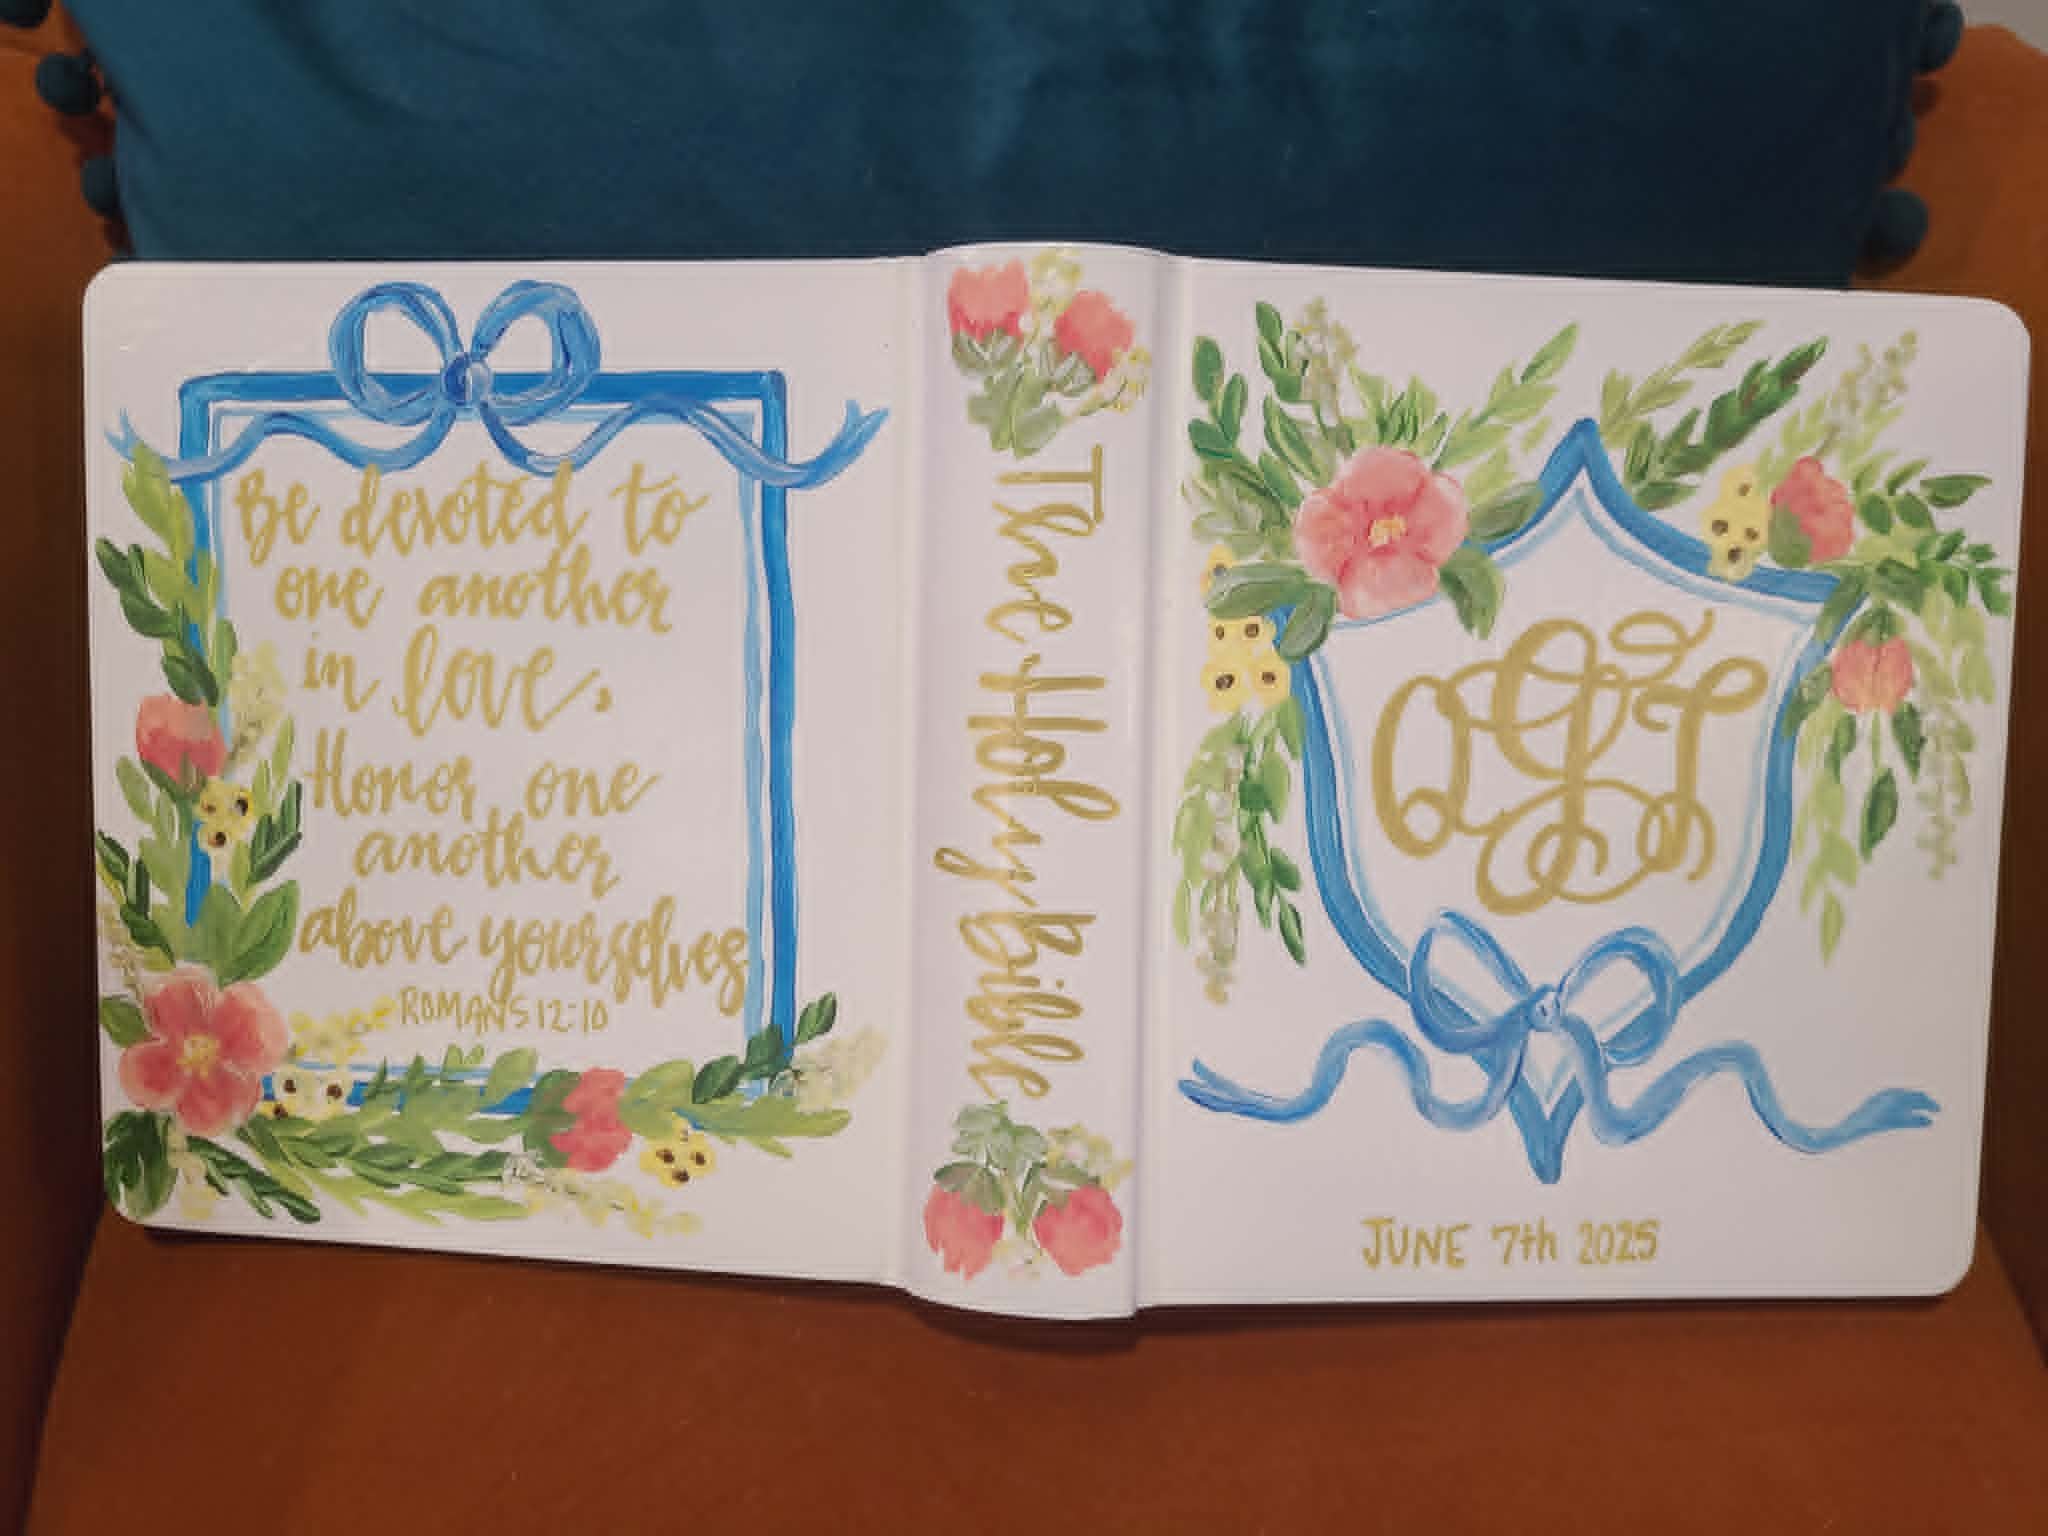 Be devoted to
one another
in love,
Honor one
another
above yourselves
ROMANS 12:10
The Holy Bible
JUNE 7th 2025